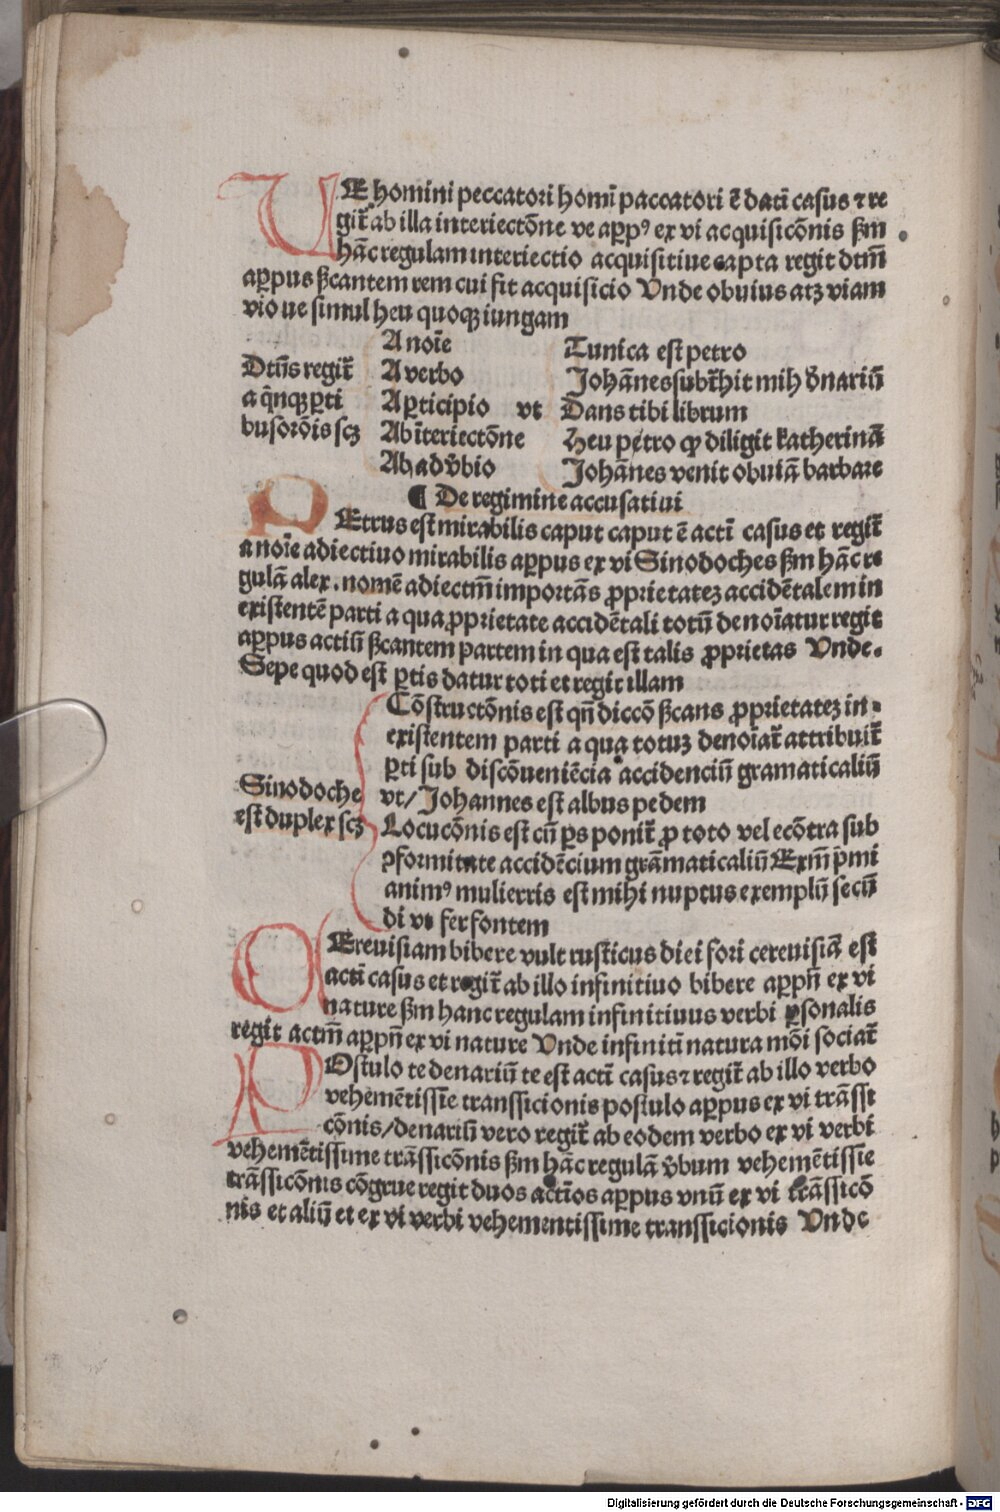 UE homini peccatori homĩ paccatori ẽ datĩ casus ⁊ re
git᷑ ab illa interiectõne ve aꝑpꝰ ex vi acquisicõnis ẞm
hãc regulam interiectio acquisitiue capta regit dtm̃
aꝑpus ẞcantem rem cui fit acquisicio Unde obuius atꝫ viam
vio ue simul heu quoqꝫ iungam
A noĩe Tunica est petro
Dtũs regit᷑ A verbo Johãnes subr̃hit mih dñariũ
a q̃nqꝫ ꝑti A ꝑticipio vt Dans tibi librum
bus orõis scꝫ Ab ĩteriectõne Heu petro qꝫ diligit katherinã
Ab adṽbio Johãnes venit obuiã barbare
¶ De regimine accusatiui
PEtrus est mirabilis caput caput ẽ actĩ casus et regit᷑
a noĩe adiectiuo mirabilis aꝑpus ex vi Sinodoches ẞm hãc re
gulã alex. nomẽ adiectm̃ importãs ꝓprietatez accidẽtalem in
existentẽ parti a qua ꝓprietate accidẽtali totũ denoĩatur regit
aꝑpus actiũ ẞcantem partem in qua est talis ꝓprietas Unde.
Sepe quod est ꝑtis datur toti et regit illam
Cõstructõnis est qñ diccõ ẞcans ꝓprietatez in-
existentem parti a qua totuz denoĩat᷑ attribuit᷑
ꝑti sub discõueniẽcia accidenciũ gramaticaliũ
Sinodoche vt/ Johannes est albus pedem
est duplex scꝫ Locucõnis est cũ ꝑs ponit᷑ ꝓ toto vel ecõtra sub
ꝯformitate accidẽcium grãmaticaliũ Exm̃ p̃mi
animꝰ mulierris est mihi nuptus exemplũ secũ
di vt fer fontem
CEreuisiam bibere vult rusticus diei fori cereuisiã est
actĩ casus et regit᷑ ab illo infinitiuo bibere aꝑpñ ex vi
nature ẞm hanc regulam infinitiuus verbi ꝑsonalis
regit actm̃ aꝑpñ ex vi nature Unde infinitĩ natura mõi sociat᷑
POstulo te denariũ te est actĩ casus ⁊ regit᷑ ab illo verbo
vehemẽtissĩe transsicionis postulo aꝑpus ex vi trãssi
cõnis/ denariũ vero regit᷑ ab eodem verbo ex vi verbi
vehemẽtissime trãssicõnis ẞm hãc regulã ṽbum vehemẽtissĩe
trãssicõnis cõgrue regit duos actĩos aꝑpus vnũ ex vi trãssicõ
nis et aliũ et ex vi verbi vehementissime transsicionis Unde
Digitalisierung gefördert durch die Deutsche Forschungsgemeinschaft - DFG